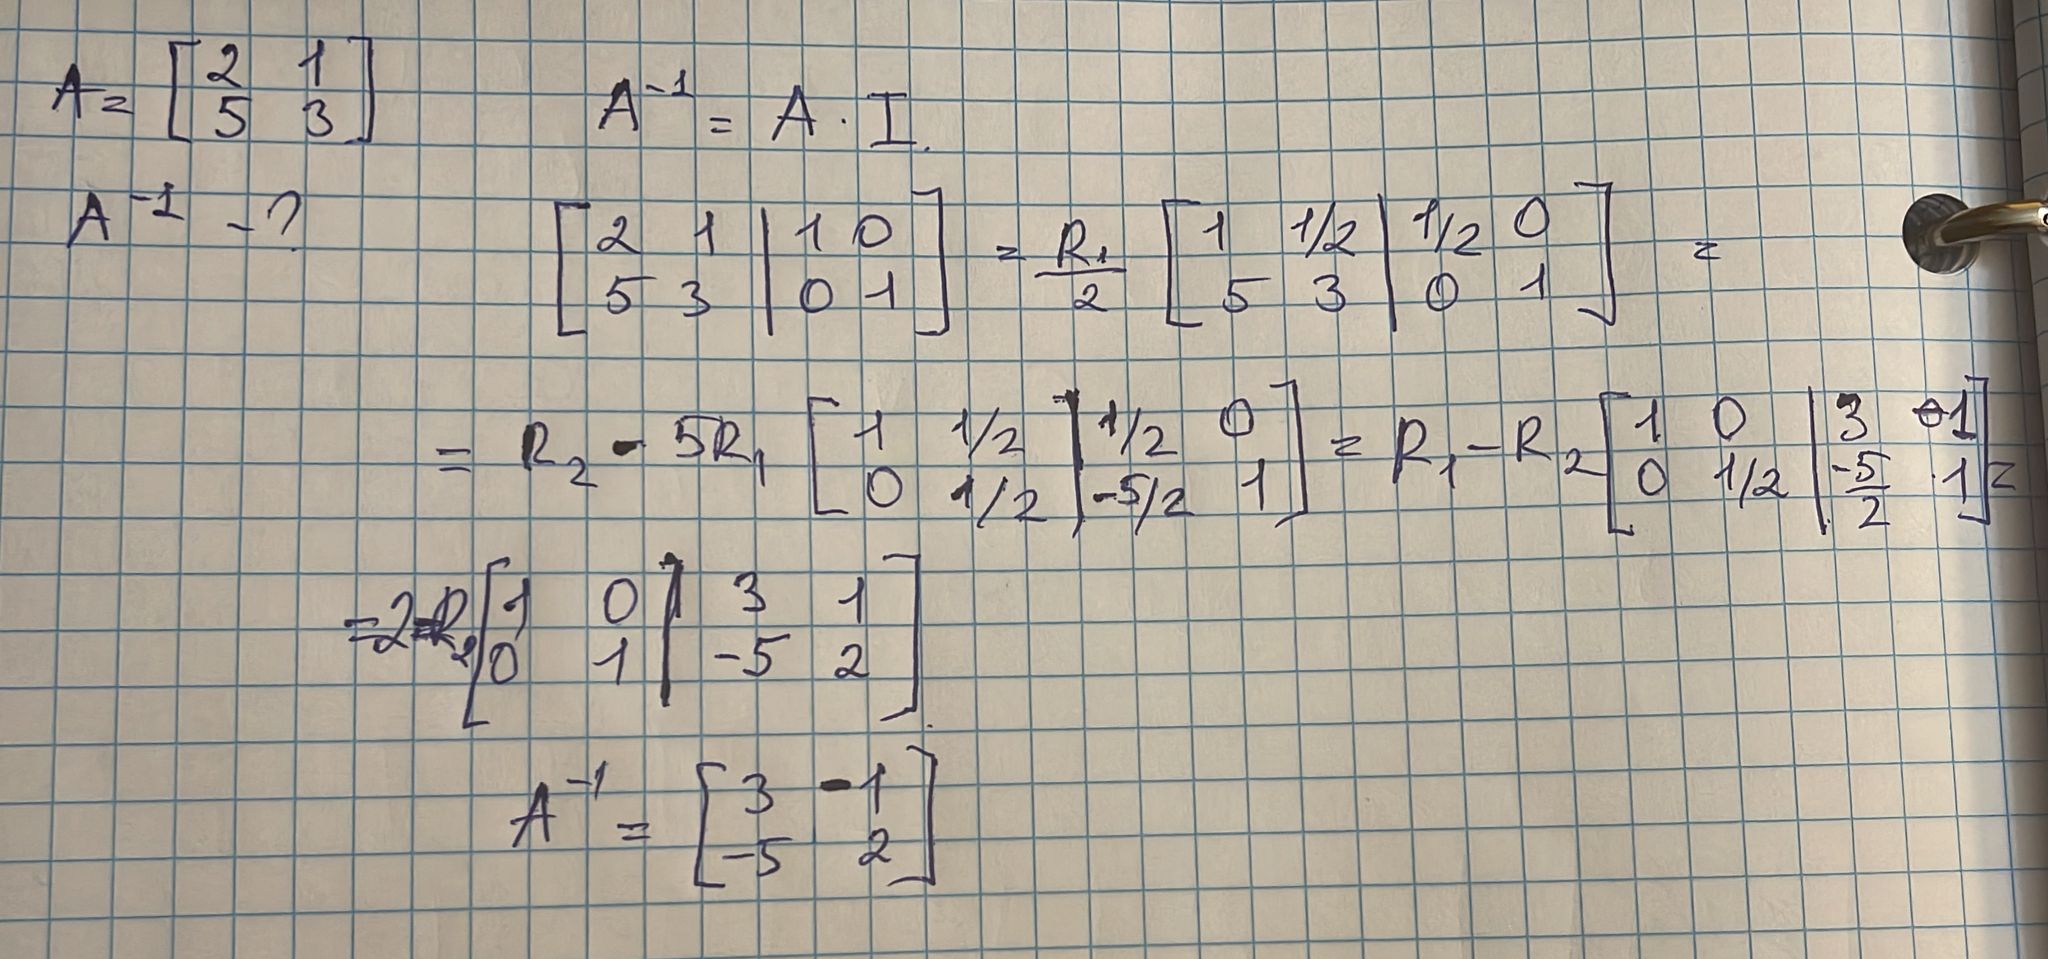 A = [2 1; 5 3]    A⁻¹ = A · I.
A⁻¹ - ?    [2 1 | 1 0; 5 3 | 0 1] = R₁/2 [1 1/2 | 1/2 0; 5 3 | 0 1] =
= R₂ - 5R₁ [1 1/2 | 1/2 0; 0 1/2 | -5/2 1] = R₁ - R₂ [1 0 | 3 -1; 0 1/2 | -5/2 1] =
= 2 R₂ [1 0 | 3 1; 0 1 | -5 2]
A⁻¹ = [3 -1; -5 2]